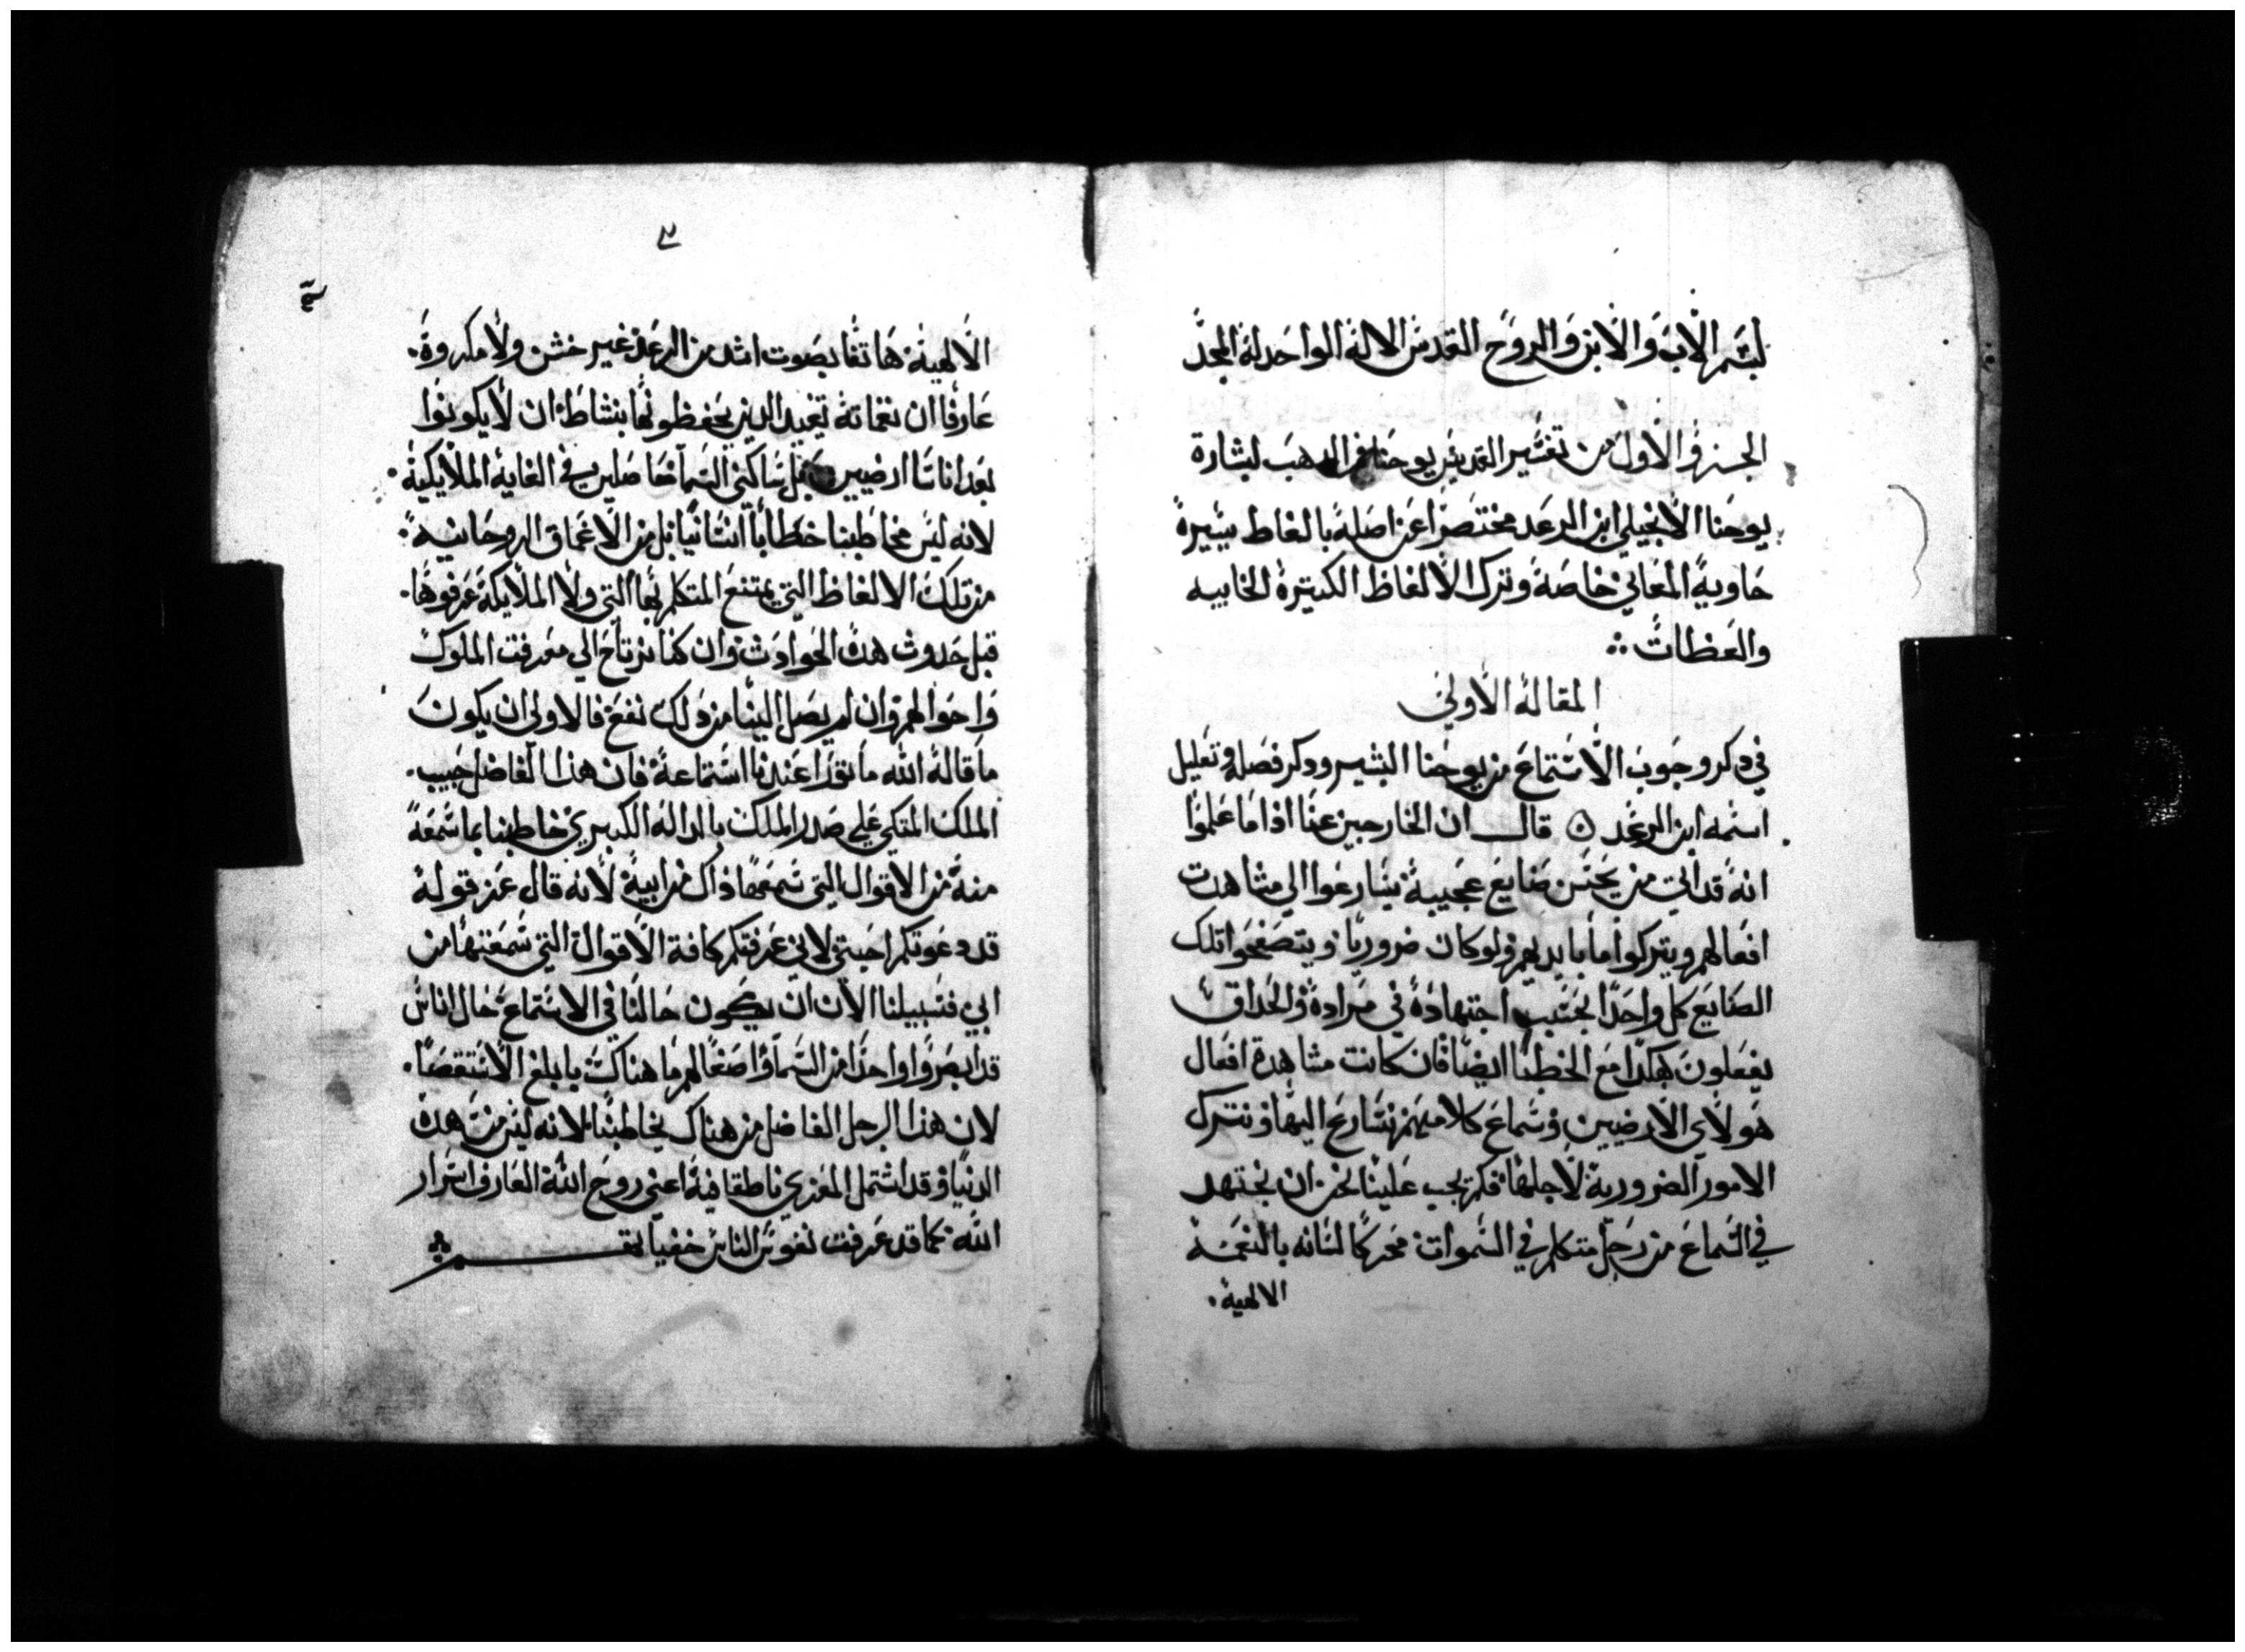 بسم الاب والابن والروح القدس الاله الواحد له المجد
الجزو الاول من تفسير القديس يوحنا فم الدهب لبشارة
يوحنا الانجيلي ابن الرعد مختصرا عن اصله بالفاظ يسيرة
حاوية المعاني خاصة وترك الالفاظ الكتيرة الخابيه
والعظات
المقالة الاولي
في دكر وجوب الاستماع من يوحنا البشير ودكر فضله وتعليل
اسمه ابن الرعد قال ان الخارجين عنا اذا ما علموا
انه قد اتي من يحسن صنايع عجيبة يسارعوا الي مشاهدت
افعالهم ويتركوا ما بايديهم ولو كان ضروريا ويتصفحوا تلك
الصنايع كل واحدا بحسب اجتهاده في مراده والحداق
يفعلون هكدا مع الخطبا ايضا فان كانت مشاهدة افعال
هولاي الارضيين وسماع كلامهم نسارع اليها ونترك
الامور الضرورية لاجلها فكم يجب علينا نحن ان نجتهد
في السماع من رجل متكلم في السموات محركا لسانه بالنغمة
الالهية
٢
الالهية هاتفا بصوت اشد من الرعد غير خشن ولا مكروة
عارفا ان نغماته تفيد الدين يحفظونها بنشاط ان لا يكونوا
بعد اناسا ارضيين بل ساكني السما حاصلين في الغاية الملايكية
لانه ليس مخاطبنا خطابا انسانيا بل من الاعماق الروحانيه
من تلك الالفاظ التي يمتنع المتكلم بها التي ولا الملايكة عرفوها
قبل حدوث هده الحوادت وان كنا نرتاح الي معرفت الملوك
واحوالهم وان لم يصل الينا من دلك نفع فالاولي ان يكون
ما قاله الله ما نوقرا عندنا استماعة فان هذا الفاضل حبيب
الملك المتكي علي صدر الملك بالدالة الكبيري خاطبنا بما سمعة
منه من الاقوال التي سمعها ذاك من ابية لانه قال عن قوله
قد دعوتكم احبتي لاني عرفتكم كافة الاقوال التي سمعتها من
ابي فسبيلنا الان ان يكون حالنا في الاستماع حال اناس
قد ابصروا واحدا من السما واصغا لهم ما هناك بابلغ الاستقصا
لان هذا الرجل الفاضل من هناك يخاطبنا لانه ليس من هده
الدنيا وقد اشتمل المعزي ناطقا فيه اعني روح الله العارف اسرار
الله كما قد عرفت نفوس الناس خفياتهم